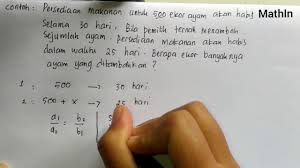 MathIn
Contoh: Persediaan makanan untuk 500 ekor ayam akan habis
Selama 30 hari, Bila pemilik ternak menambah
Sejumlah ayam. Persediaan makanan akan habis
dalam waktu 25 hari. Berapa ekor banyaknya
ayam yang ditambahkan?
1 : 500 → 30 hari
2 : 500 + x → 25 hari
a₁/a₂ = b₂/b₁